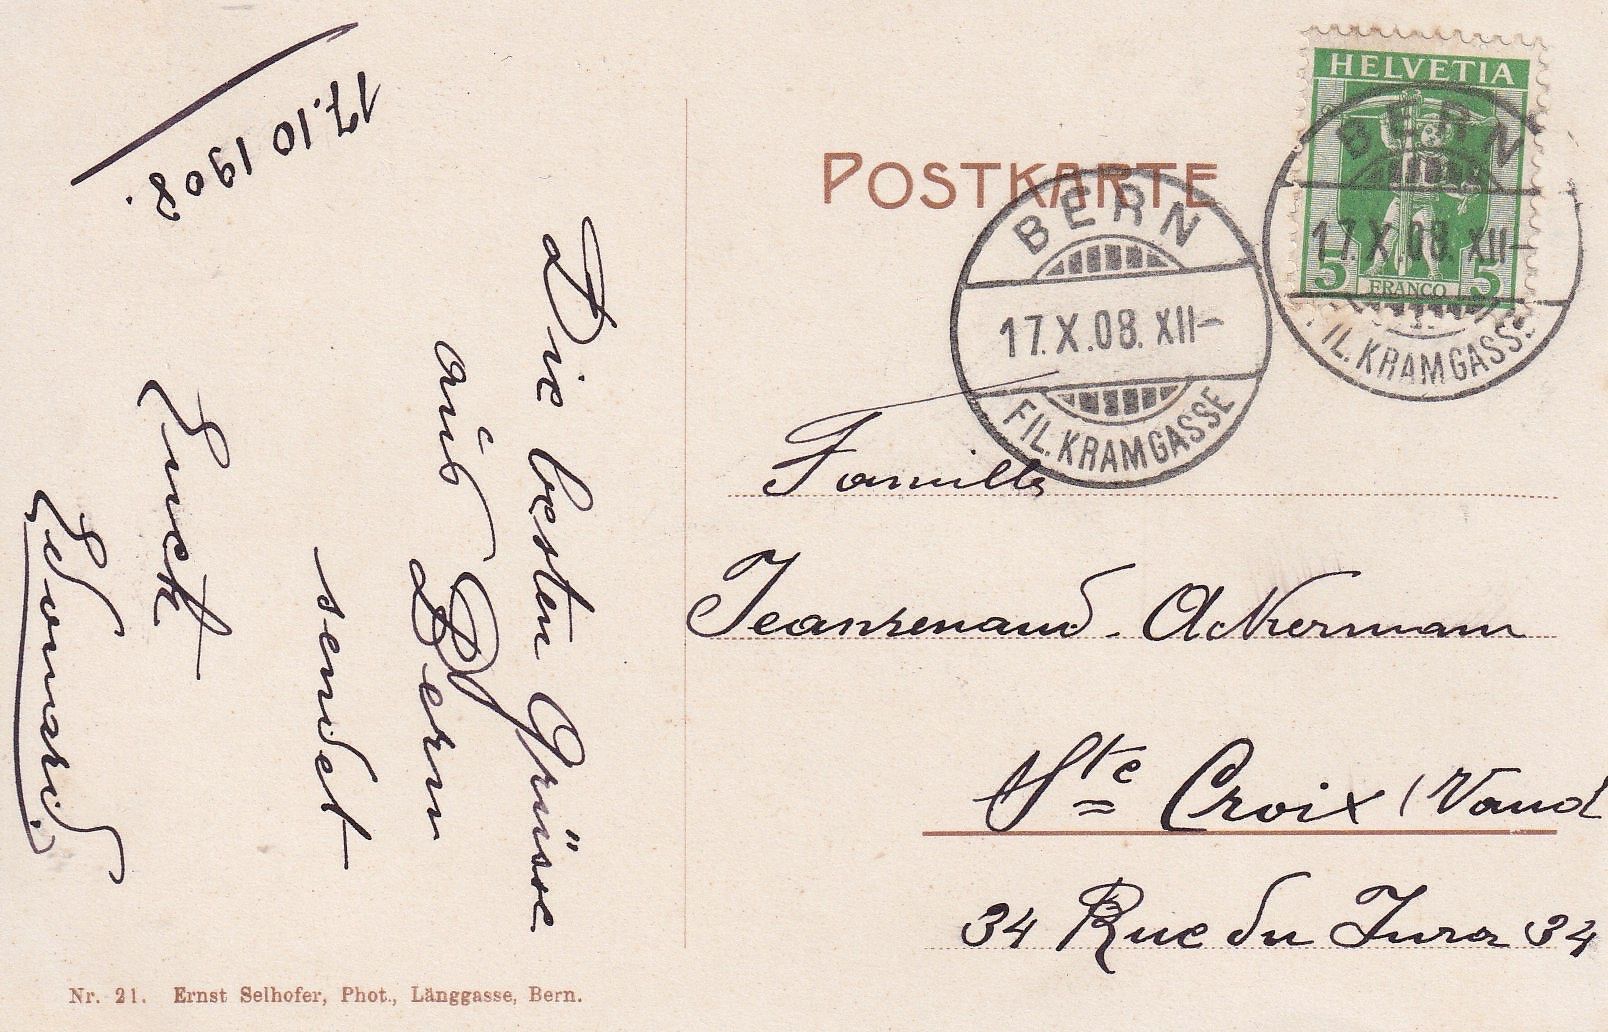 17.10 1908.
Die besten Grüsse
aus Bern
sendet
Edouard.
POSTKARTE
HELVETIA
5 FRANCO 5
BERN
17.X.08.XII–
FIL. KRAMGASSE
BERN
17.X.08.XII–
FIL. KRAMGASSE
Famille
Jeanrenaud-Ackermann
Ste Croix (Vaud
34 Rue du Jura 34
Nr. 21. Ernst Selhofer, Phot., Länggasse, Bern.